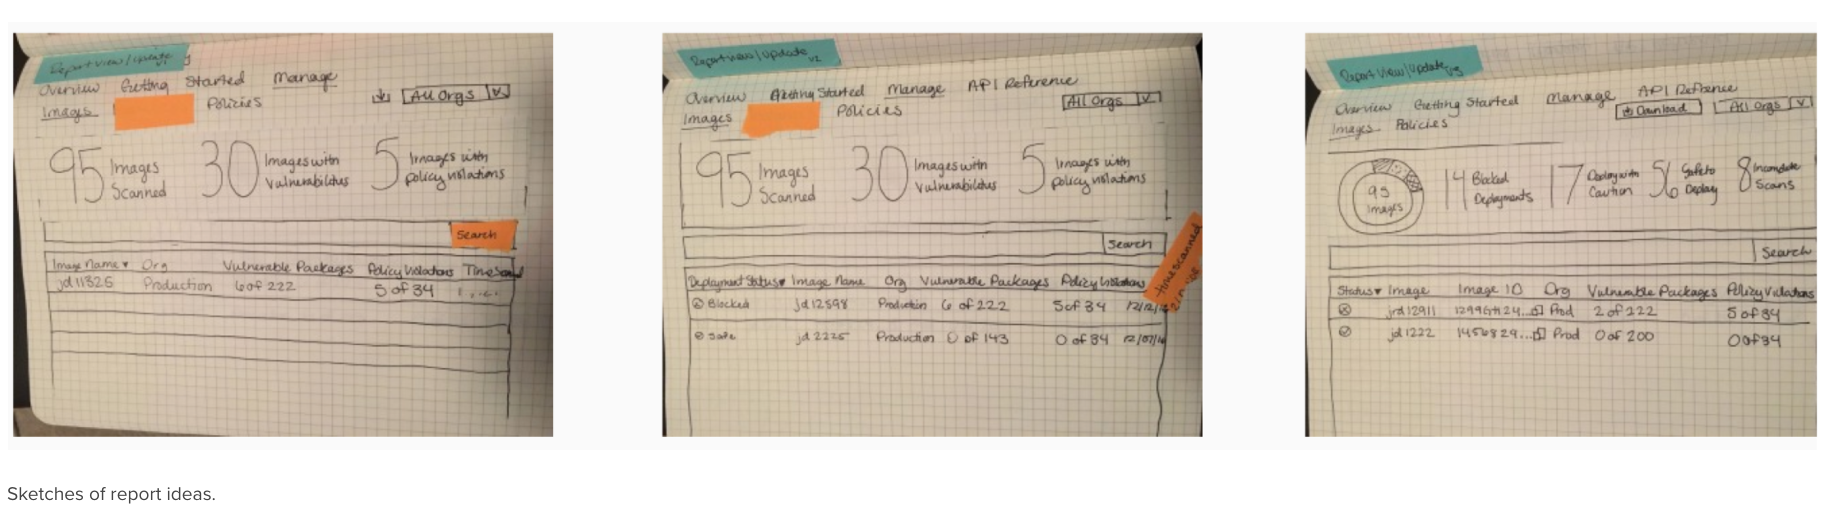 Report view/update
Overview Getting Started Manage
Images Policies All Orgs
95 Images Scanned 30 Images with Vulnerabilities 5 Images with policy violations
Search
Image Name Org Vulnerable Packages Policy Violations
jd11325 Production 6 of 222 5 of 34
Report view/update v2
Overview Getting Started Manage API Reference
Images Policies All Orgs
95 Images Scanned 30 Images with Vulnerabilities 5 Images with policy violations
Search
time scanned
Deployment Status Image Name Org Vulnerable Packages Policy Violations
Blocked jd12598 Production 6 of 222 5 of 34
Safe jd2225 Production 0 of 143 0 of 34
Report View/Update v3
Overview Getting Started Manage API Reference
Images Policies Download All Orgs
95 Images 14 Blocked Deployments 17 Deploy with Caution 56 Safe to Deploy 8 Incomplete Scans
Search
Status Image Image ID Org Vulnerable Packages Policy Violations
jrd12911 Prod 2 of 222 5 of 34
jd1222 1456829... Prod 0 of 200 0 of 34
Sketches of report ideas.